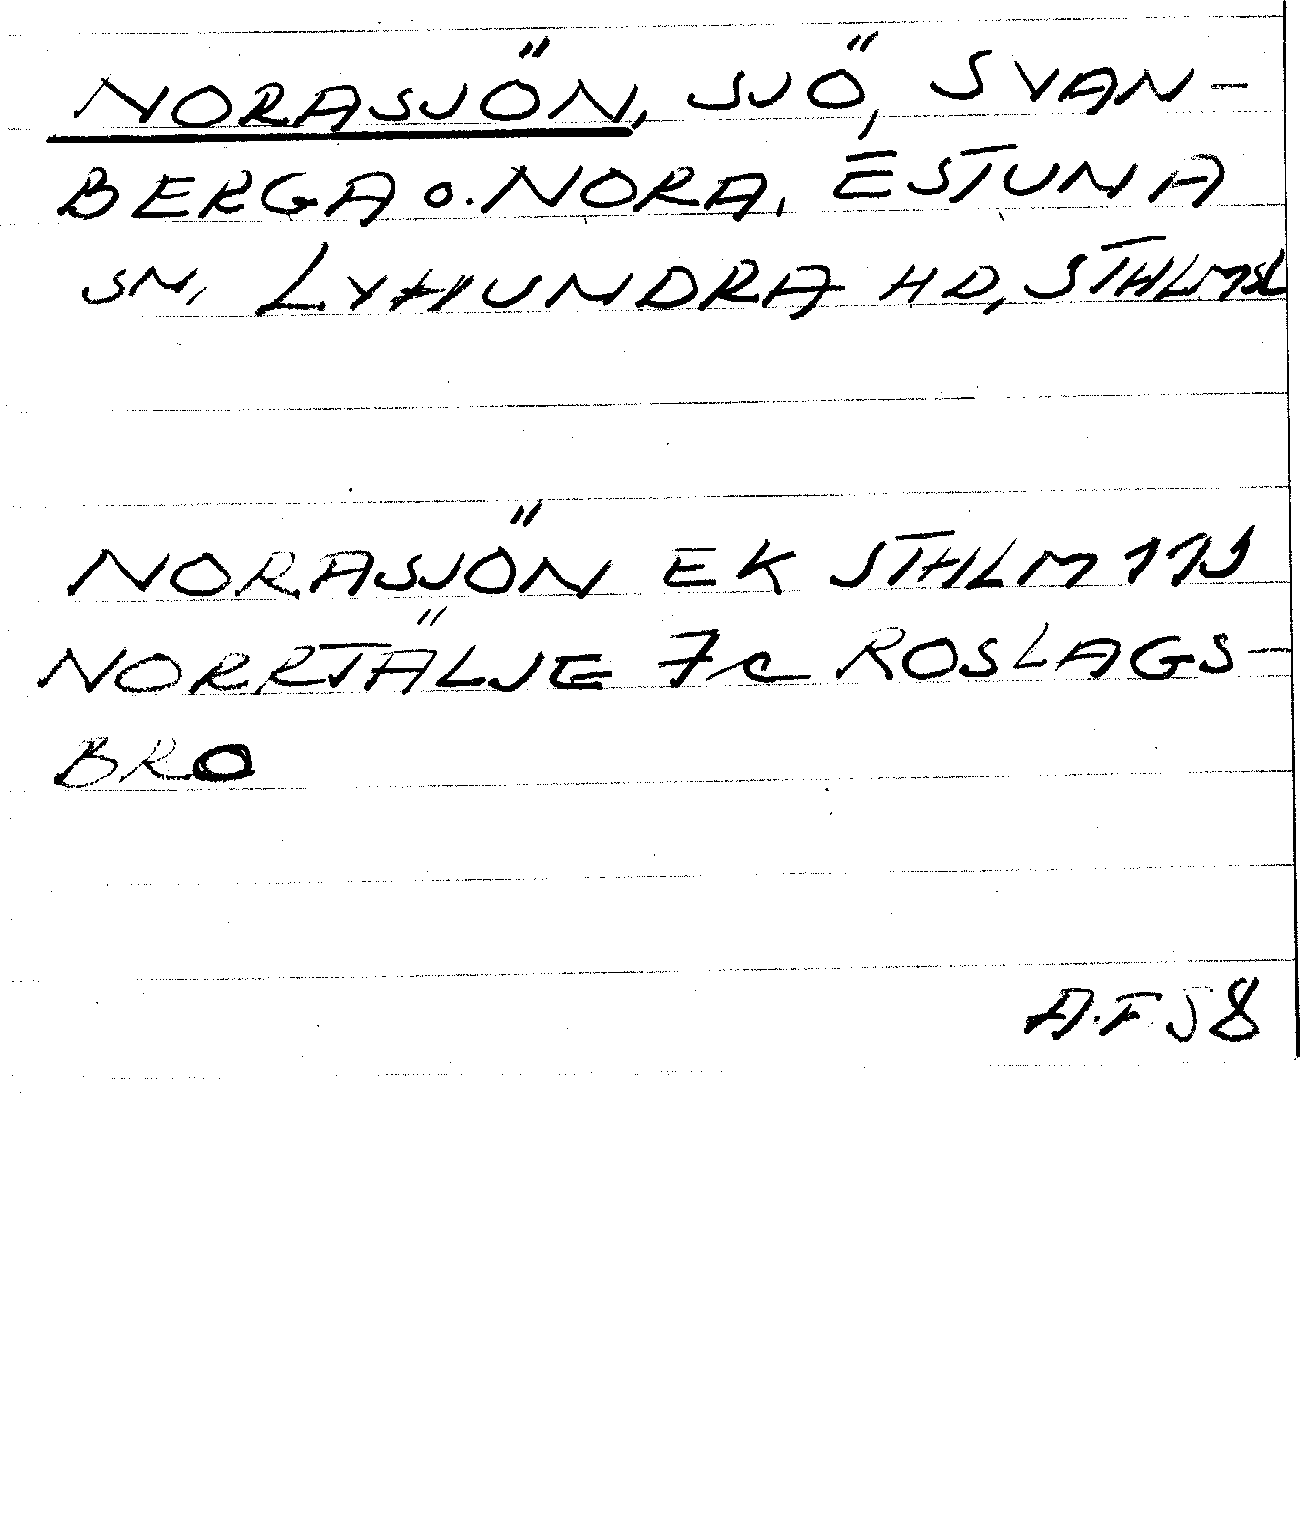 NORASJÖN, SJÖ, SVAN-
BERGA o. NORA, ESTUNA
SN, LYHUNDRA HD, STHLMSL
NORASJÖN EK STHLM 115
NORRTÄLJE 7c ROSLAGS-
BRO
A.F 58